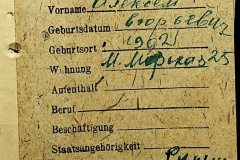 Vorname Алексей
Geburtsdatum Егорьевич
Geburtsort 1902
Wohnung М. Морская 25
Aufenthalt
Beruf
Beschäftigung
Staatsangehörigkeit